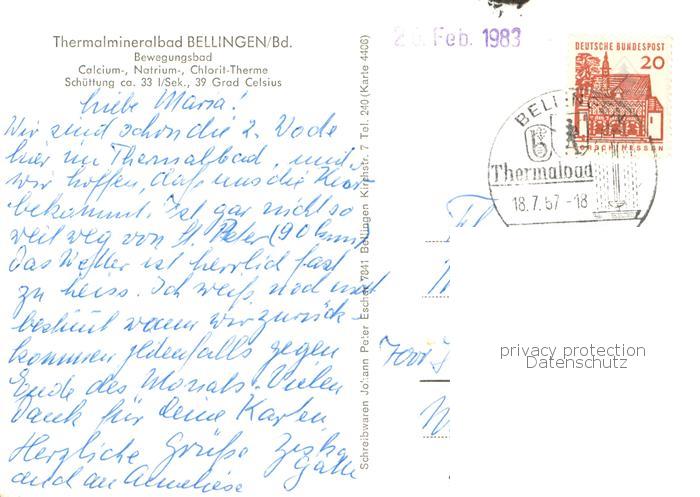 Thermalmineralbad BELLINGEN/Bd.
Bewegungsbad
Calcium-, Natrium-, Chlorit-Therme
Schüttung ca. 33 l/Sek., 39 Grad Celsius
Liebe Maria!
Wir sind schon die 2. Woche
hier im Thermalbad, und
wir hoffen, daß uns die Kur
bekommt. Ist gar nicht so
weit weg von St. Peter (90 km)
Das Wetter ist herrlich fast
zu heiss. Ich weiß noch nicht
bestimt wann wir zurück-
kommen jedenfalls gegen
Ende des Monats. Vielen
Dank für Deine Karten
Herzliche Grüße
und an Anneliese
Schreibwaren Johann Peter Escher 7841 Bellingen Kirchstr. 7 Tel. 240 (Karte 4406)
Feb. 1983
DEUTSCHE BUNDESPOST
20
LORSCH/HESSEN
BELLINGEN
Thermalbad
18.7.67 -18
privacy protection
Datenschutz